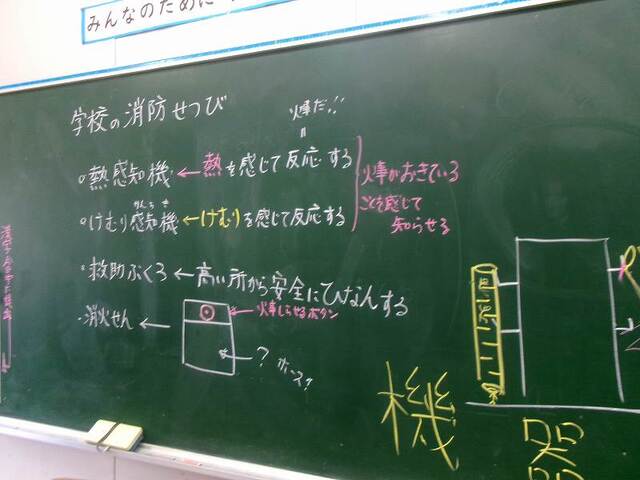 みんなのために
学校の消防せつび
火事だ!!
熱感知機←熱を感じて反応する
かんちき
けむり感知機←けむりを感じて反応する
火事がおきている
ことを感じて
知らせる
・救助ぶくろ←高い所から安全にひなんする
・消火せん←
←火事しらせるボタン
←? ホース?
機
器